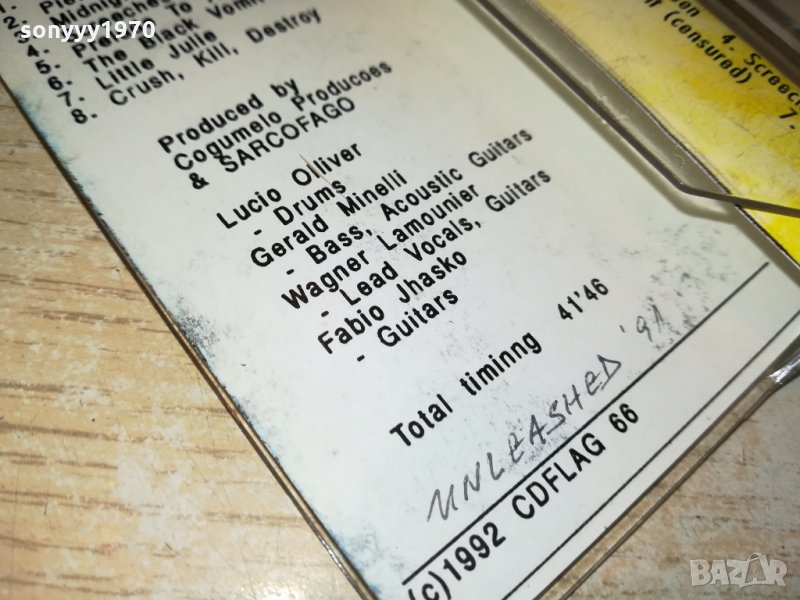 sonyyy1970
1.
2. Midnigh
3.
4.
5. Preaches To
6. The Black Vomit
7. Little Julie
8. Crush, Kill, Destroy
Produced by
Cogumelo Producoes
& SARCOFAGO
Lucio Olliver
- Drums
Gerald Minelli
- Bass, Acoustic Guitars
Wagner Lamounier
- Lead Vocals, Guitars
Fabio Jhasko
- Guitars
Total timinng 41'46
UNLEASHED '91
(c)1992 CDFLAG 66
4. Screec
(censured)
7.
BAZAR